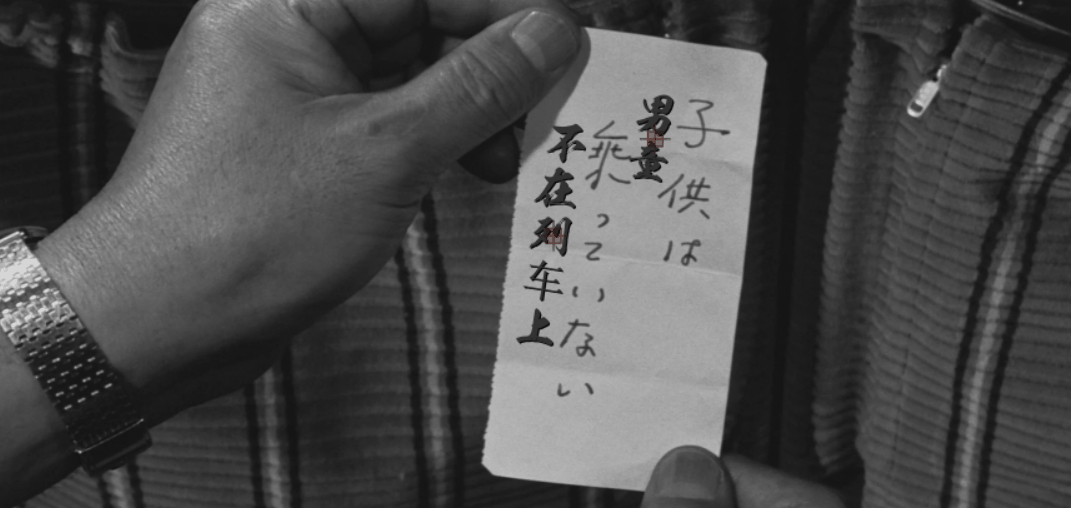 子供は
男童
乗っていない
不在列车上